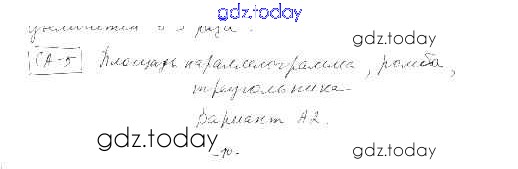 gdz.today
увеличится в 2 раза.
gdz.today
СА-5 Площадь параллелограмма, ромба,
треугольника.
Вариант А2.
gdz.today
-10-
gdz.today